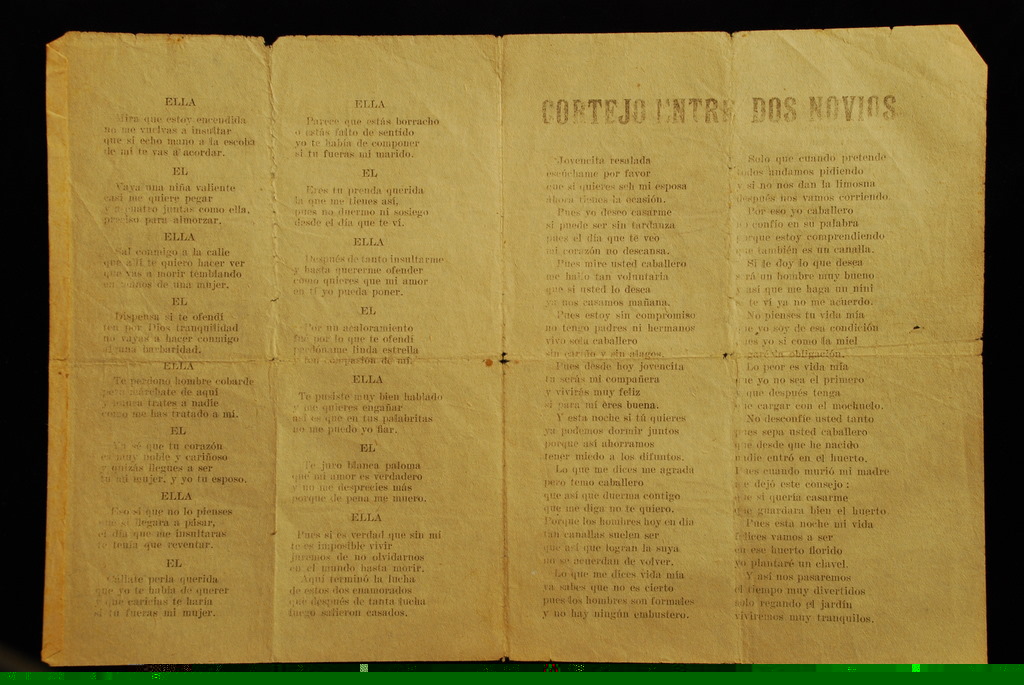 ELLA
Mira que estoy encendida
no me vuelvas a insultar
que si echo mano a la escoba
de mí te vas a acordar.
EL
Vaya una niña valiente
casi me quiere pegar
y a cuatro juntas como ella,
preciso para almorzar.
ELLA
Sal conmigo a la calle
que allí te quiero hacer ver
que vas a morir temblando
en manos de una mujer.
EL
Dispensa si te ofendí
ten por Dios tranquilidad
no vayas a hacer conmigo
alguna barbaridad.
ELLA
Te perdono hombre cobarde
pero márchate de aquí
y nunca trates a nadie
como me has tratado a mí.
EL
Yo sé que tu corazón
es muy noble y cariñoso
y quizás llegues a ser
tú mi mujer, y yo tu esposo.
ELLA
Eso sí que no lo pienses
que si llegara a pasar,
el día que me insultaras
te tenía que reventar.
EL
Cállate perla querida
que yo te había de querer
y que caricias te haría
si tú fueras mi mujer.
ELLA
Parece que estás borracho
o estás falto de sentido
yo te había de componer
si tu fueras mi marido.
EL
Eres tu prenda querida
la que me tienes así,
pues no duermo ni sosiego
desde el día que te ví.
ELLA
Después de tanto insultarme
y hasta quererme ofender
cómo quieres que mi amor
en tí yo pueda poner.
EL
Por un acaloramiento
fué por lo que te ofendí
perdóname linda estrella
ten compasión de mí.
ELLA
Te pusiste muy bien hablado
y me quieres engañar
así es que en tus palabritas
no me puedo yo fiar.
EL
Te juro blanca paloma
que mi amor es verdadero
y no me desprecies más
porque de pena me muero.
ELLA
Pues si es verdad que sin mí
te es imposible vivir
juremos de no olvidarnos
en el mundo hasta morir.
Aquí terminó la lucha
de estos dos enamorados
que después de tanta lucha
luego salieron casados.
CORTEJO ENTRE DOS NOVIOS
Jovencita resalada
escúchame por favor
que si quieres seh mi esposa
ahora tienes la ocasión.
Pues yo deseo casarme
si puede ser sin tardanza
pues el día que te veo
mi corazón no descansa.
Pues mire usted caballero
me hallo tan voluntaria
que si usted lo desea
ya nos casamos mañana.
Pues estoy sin compromiso
no tengo padres ni hermanos
vivo sola caballero
sin cariño y sin alagos.
Pues desde hoy jovencita
tu serás mi compañera
y vivirás muy feliz
si para mí eres buena.
Y esta noche si tú quieres
ya podemos dormir juntos
porque así ahorramos
tener miedo a los difuntos.
Lo que me dices me agrada
pero temo caballero
que así que duerma contigo
que me diga no te quiero.
Porque los hombres hoy en día
tan canallas suelen ser
que así que logran la suya
no se acuerdan de volver.
Lo que me dices vida mía
ya sabes que no es cierto
pues los hombres son formales
y no hay ningún embustero.
Solo que cuando pretende
todos andamos pidiendo
y si no nos dan la limosna
después nos vamos corriendo.
Por eso yo caballero
no confío en su palabra
porque estoy comprendiendo
que también es un canalla.
Si le doy lo que desea
será un hombre muy bueno
y así que me haga un nini
si te ví ya no me acuerdo.
No pienses tu vida mía
que yo soy de esa condición
pues yo si como la miel
pagaré la obligación.
Lo peor es vida mía
que yo no sea el primero
y que después tenga
que cargar con el mochuelo.
No desconfíe usted tanto
pues sepa usted caballero
que desde que he nacido
nadie entró en el huerto.
Pues cuando murió mi madre
me dejó este consejo;
que si quería casarme
que guardara bien el huerto.
Pues esta noche mi vida
felices vamos a ser
en ese huerto florido
yo plantaré un clavel.
Y así nos pasaremos
el tiempo muy divertidos
solo regando el jardín
viviremos muy tranquilos.